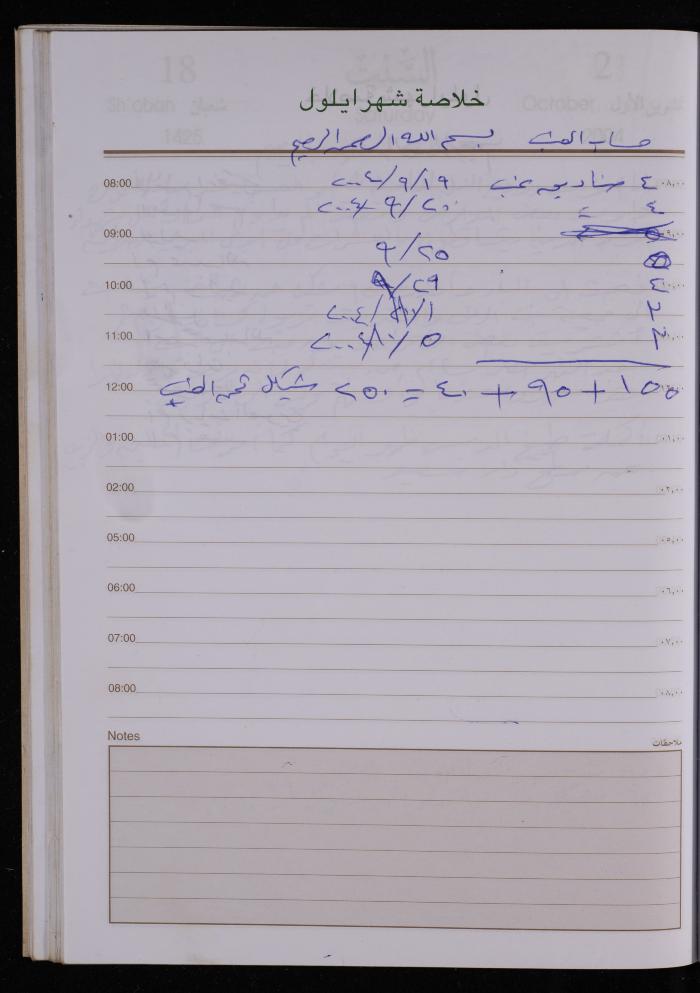 خلاصة شهر ايلول
حساب العنب بسم الله الرحمن الرحيم
08:00 ٤ صناديق عنب ٢٠٠٤/٩/١٩ ٠٨,٠٠
٤ = ٢٠٠٤/٩/٢٠
09:00 ٠٩,٠٠
٩/٢٥
10:00 ٤ ٩/٢٩ ١٠,٠٠
٢ ٢٠٠٤/١٠/١
11:00 ٣ ٢٠٠٤/١٠/٥ ١١,٠٠
12:00 ١٥٥ + ٩٥ + ٤٠ = ٢٥٠ شيكل ثمن العنب
01:00 ٠١,٠٠
02:00 ٠٢,٠٠
05:00 ٠٥,٠٠
06:00 ٠٦,٠٠
07:00 ٠٧,٠٠
08:00 ٠٨,٠٠
Notes ملاحظات